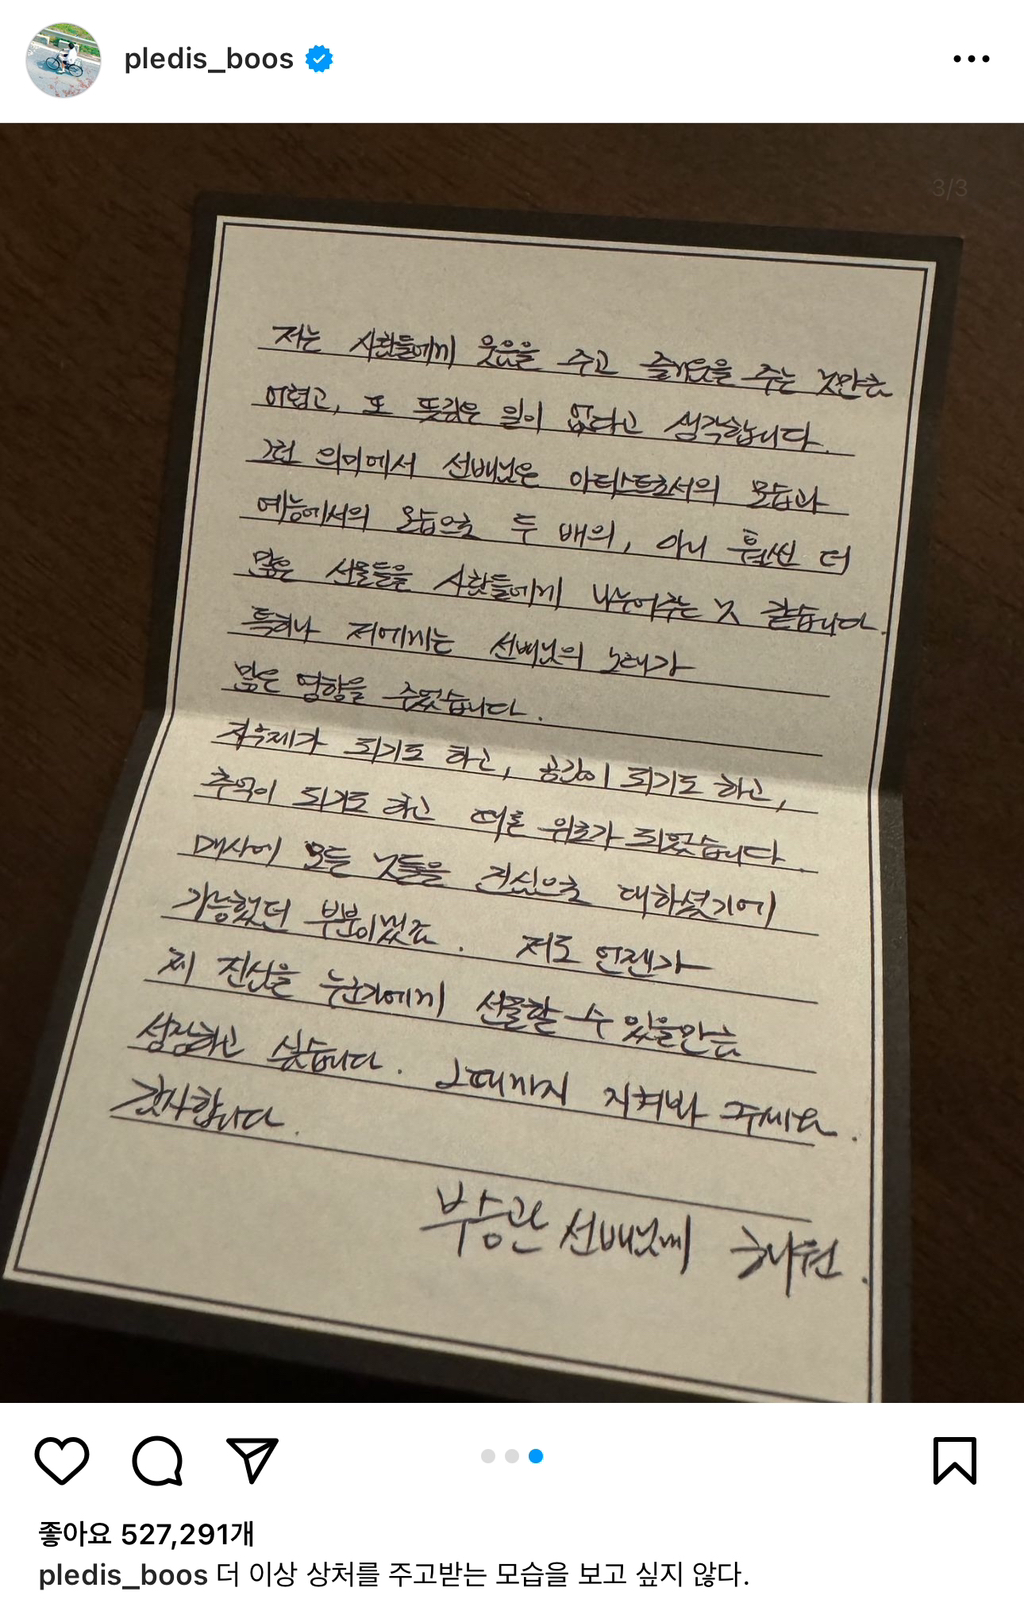 pledis_boos
3/3
저는 사람들에게 웃음을 주고 즐거움을 주는 것만큼
어렵고, 또 뜻깊은 일이 없다고 생각합니다.
그런 의미에서 선배님은 아티스트로서의 모습과
예능에서의 모습으로 두 배의, 아니 훨씬 더
많은 선물들을 사람들에게 나누어주는 것 같습니다.
특히나 저에게는 선배님의 노래가
많은 영향을 주었습니다.
자욱제가 되기도 하고, 공감이 되기도 하고,
추억이 되기도 하고 때론 위로가 되었습니다.
매사에 모든 것들을 진심으로 대하셨기에
가능했던 부분이겠죠. 저도 언젠가
제 진심을 누군가에게 선물할 수 있을만큼
성장하고 싶습니다. 그때까지 지켜봐 주세요.
감사합니다.
부승관 선배님께
좋아요 527,291개
pledis_boos 더 이상 상처를 주고받는 모습을 보고 싶지 않다.